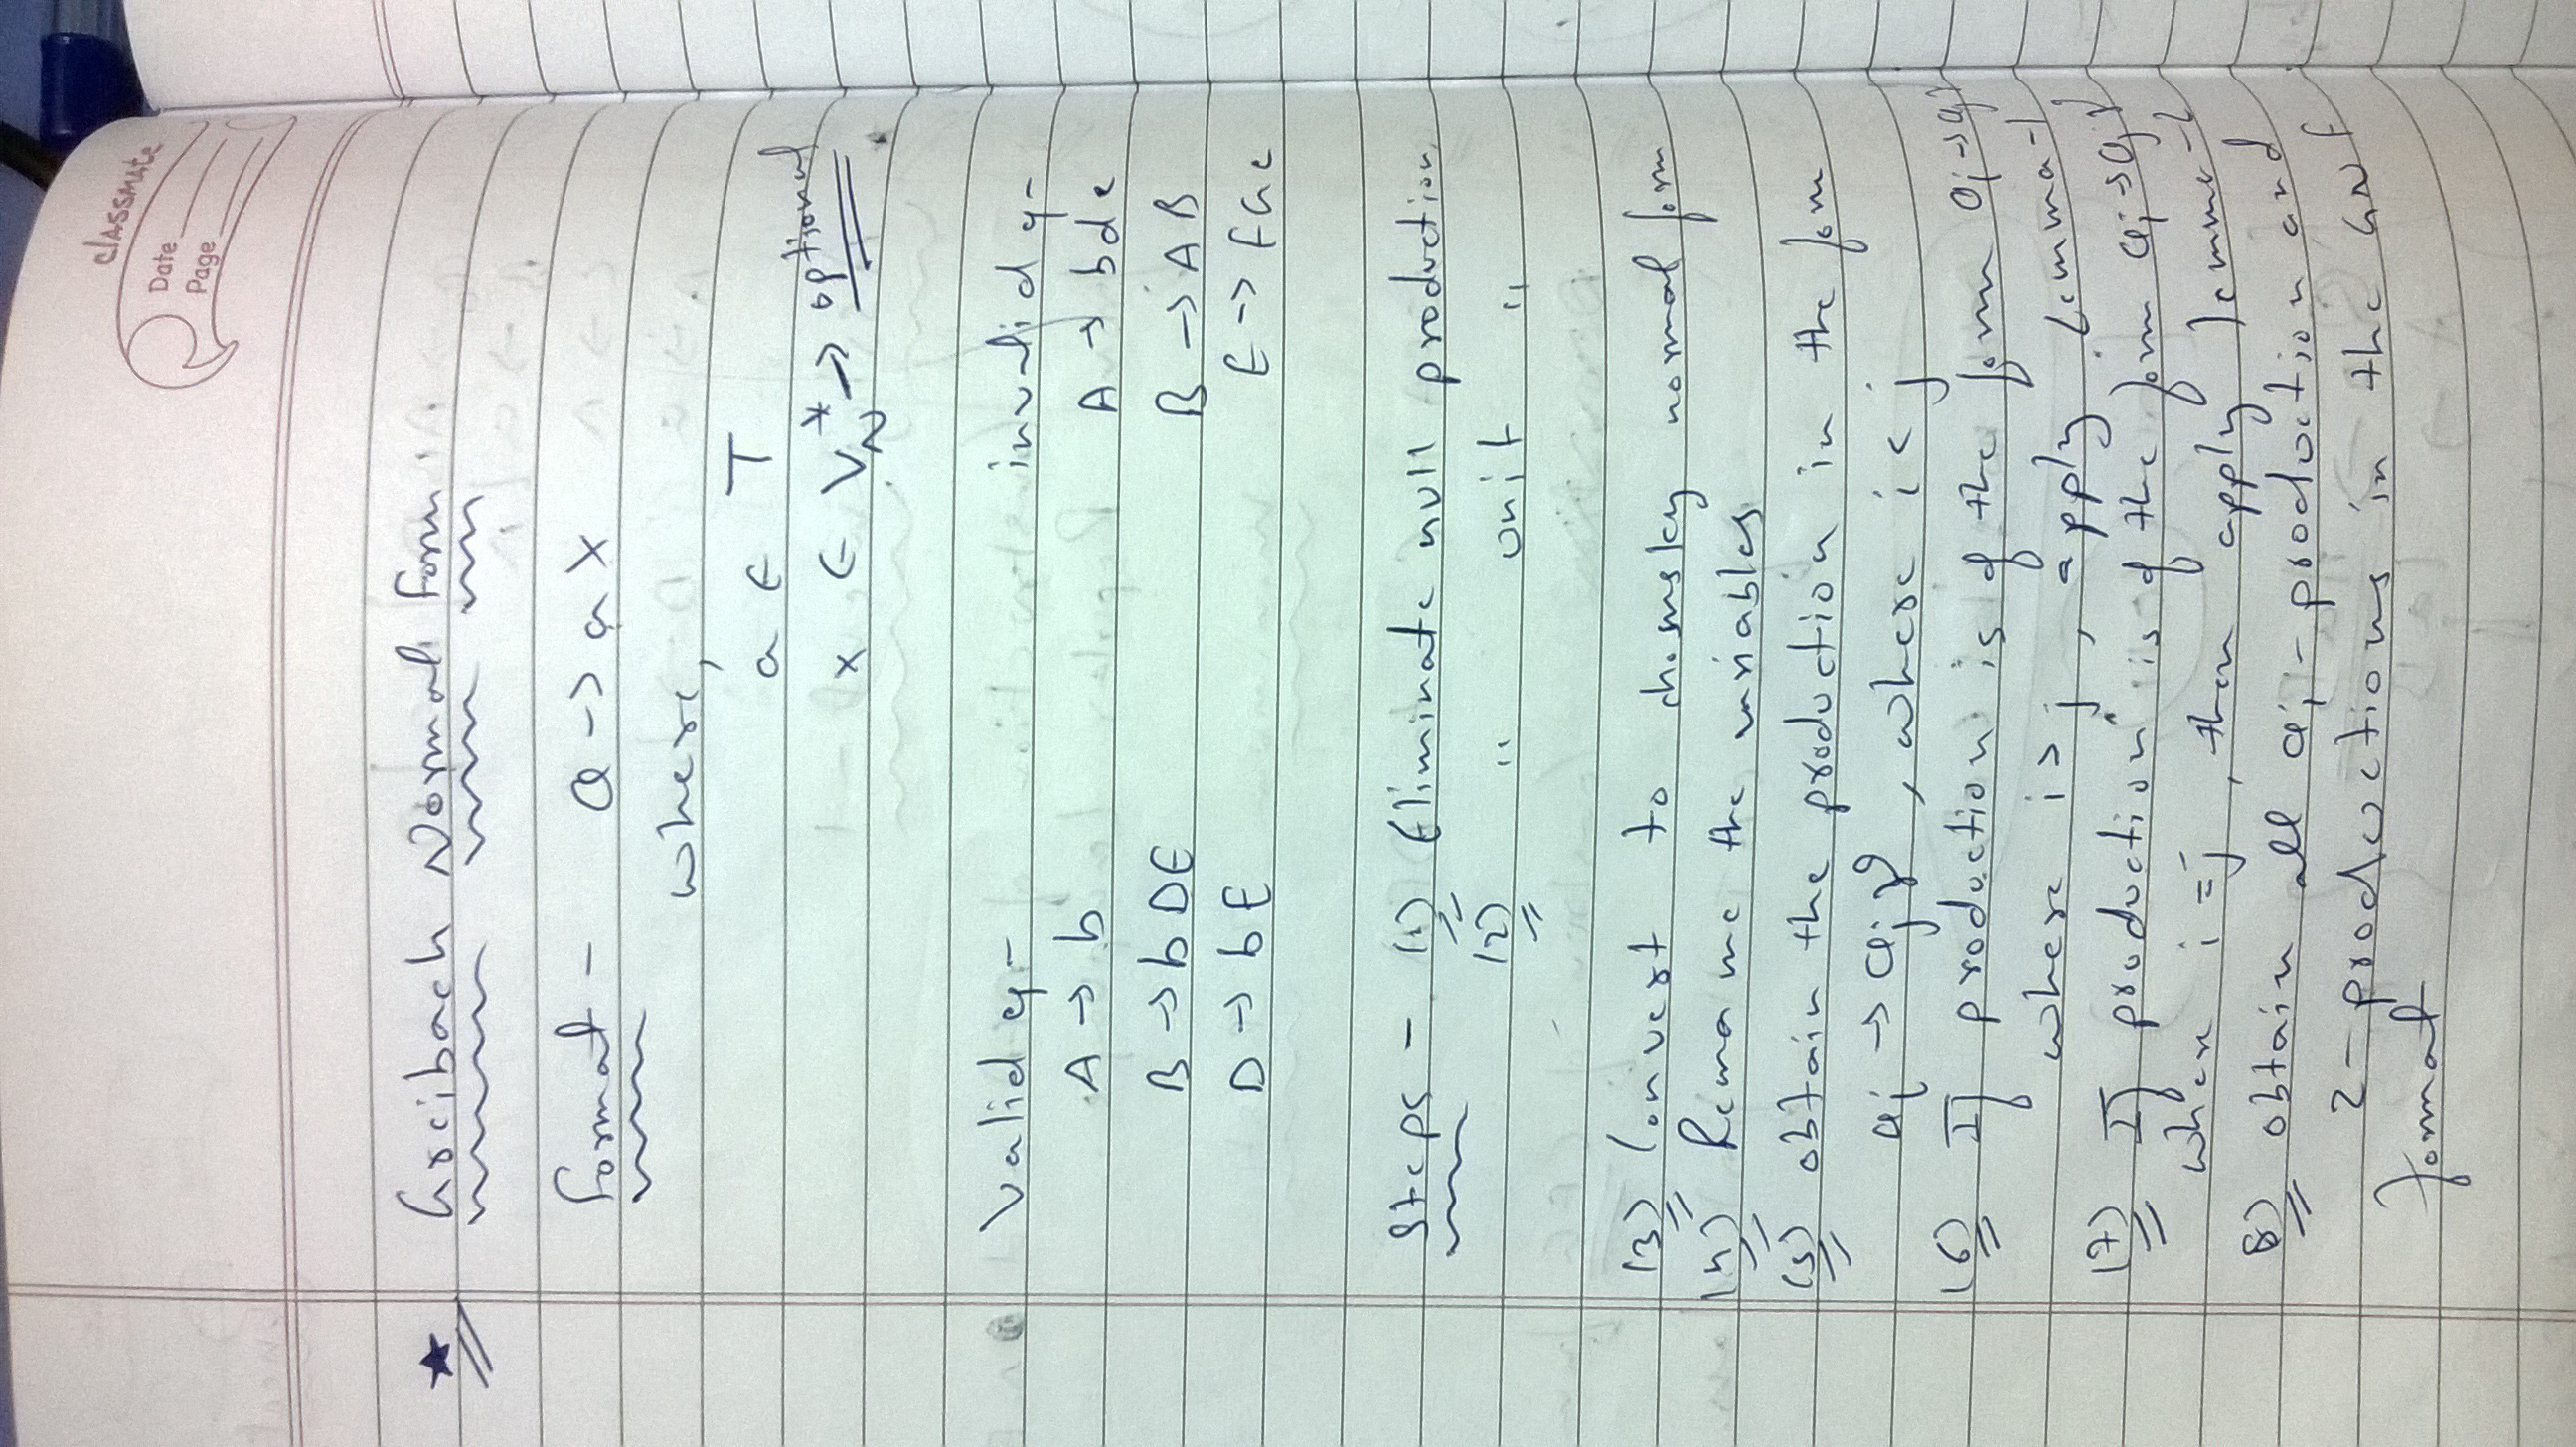 classmate
Date
Page
★ Greibach Normal Form
Format - Q → a X
where,
a ∈ T
x ∈ V_N* → optional
Valid eg- invalid eg-
A → b A → bde
B → bDE B → AB
D → bE E → FGe
Steps - (1) Eliminate null production
(2) " unit "
(3) Convert to chomsky normal form
(4) Rename the variables
(5) obtain the production in the form
ai → aj γ, where i < j
(6) If production is of the form ai → aj γ
where i > j, apply Lemma-1
(7) If production is of the form ai → aj γ
where i = j, then apply lemma-2
8) obtain all ai - production and
Z-productions in the GNF
format